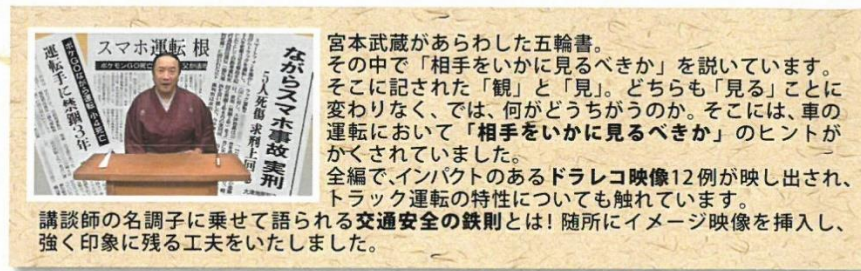 スマホ運転 根
ポケモンGO死亡
父が法
ポケGOながら運転 小4死亡
運転手に禁錮3年
ながらスマホ事故 実刑
5人死傷 求刑上回
宮本武蔵があらわした五輪書。
その中で「相手をいかに見るべきか」を説いています。
そこに記された「観」と「見」。どちらも「見る」ことに
変わりなく、では、何がどうちがうのか。そこには、車の
運転において「相手をいかに見るべきか」のヒントが
かくされていました。
全編で、インパクトのあるドラレコ映像12例が映し出され、
トラック運転の特性についても触れています。
講談師の名調子に乗せて語られる交通安全の鉄則とは! 随所にイメージ映像を挿入し、
強く印象に残る工夫をいたしました。